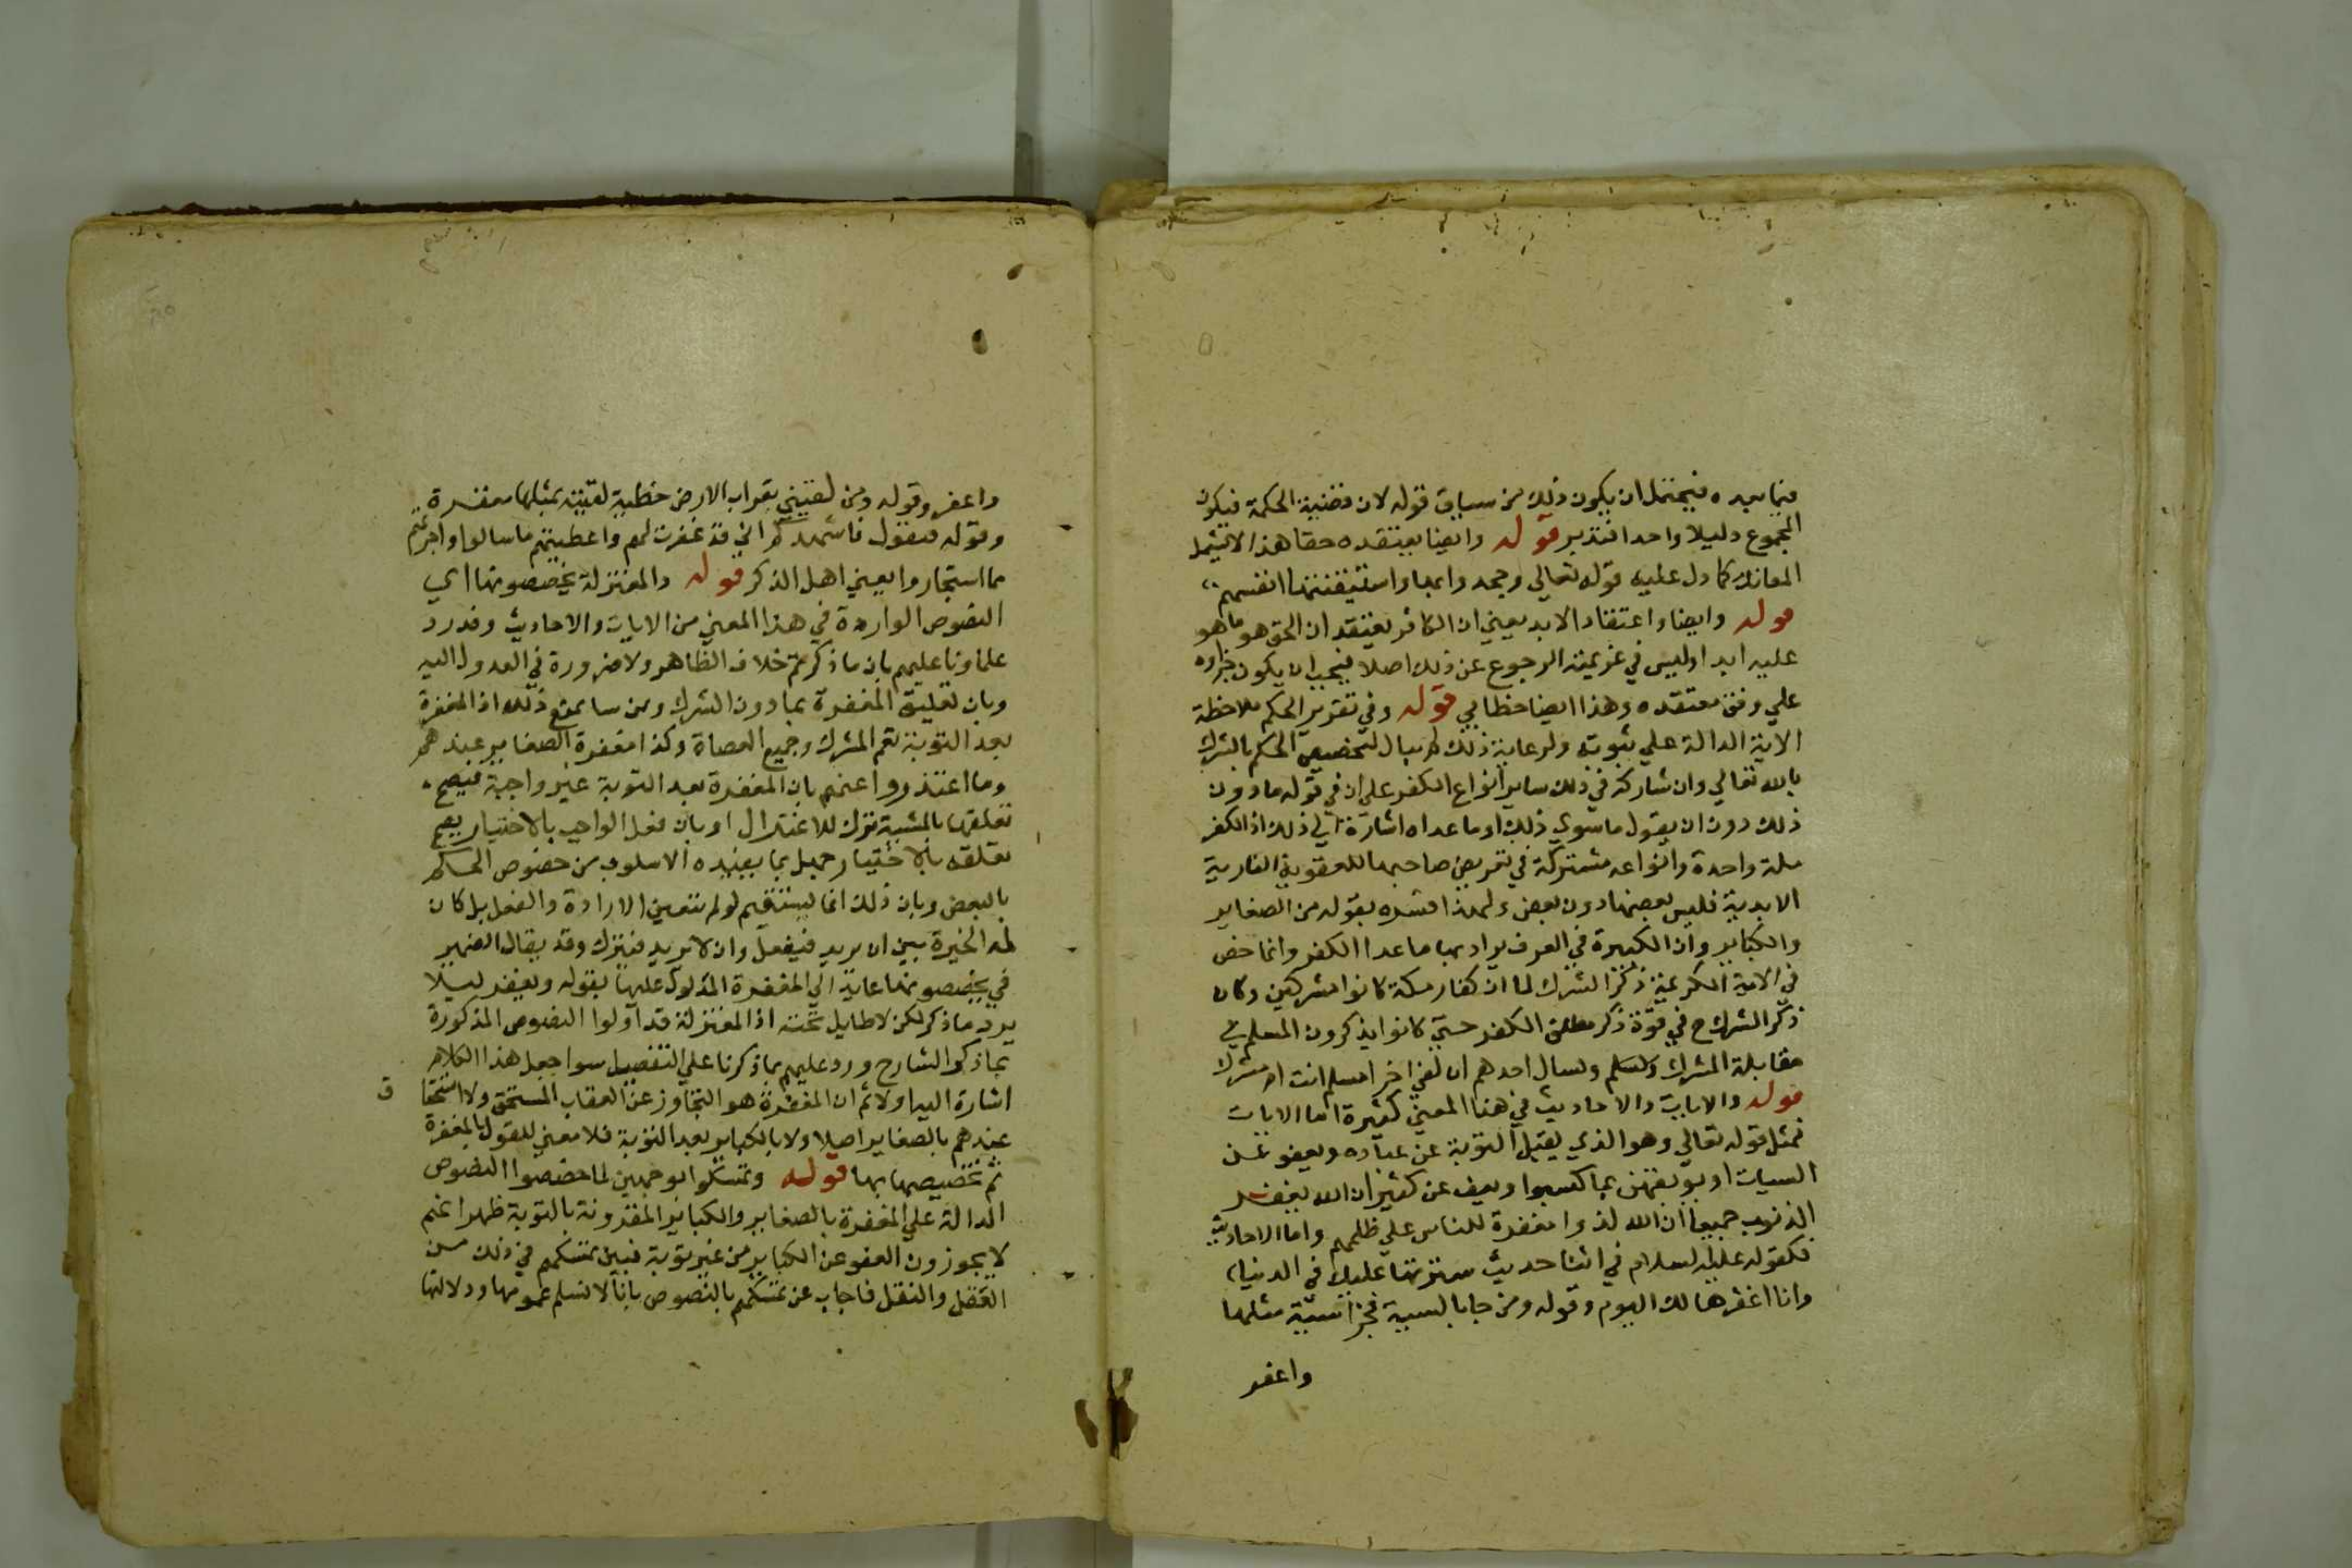 فيما بعده فيحتمل ان يكون ذلك من سياق قوله لان قضية الحكمة فيكون
المجموع دليلا واحدا فتدبر قوله وايضا يعتقده حقا هذا لا يشمل
المعاند كما دل عليه قوله تعالي وجحدوا بها واستيقنتها انفسهم
قوله وايضا واعتقاد الابد يعني ان الكافر يعتقد ان الحق هو ما هو
عليه ابدا وليس في عزيمته الرجوع عن ذلك اصلا فيجب ان يكون جزاوه
علي وفق معتقده وهذا ايضا خطابي قوله وفي تقرير الحكم ملاحظة
الاية الدالة علي ثبوته ولرعاية ذلك لم يبال لتخصيص الحكم بالشرك
بالله تعالي وان شاركه في ذلك ساير انواع الكفر علي ان في قوله ما دون
ذلك دون ان يقول ما سوي ذلك او ما عداه اشارة الي ذلك اذ الكفر
ملة واحدة وانواعه مشتركة في تعريض صاحبها للعقوبة النارية
الابدية فليس بعضها دون بعض ولهذا فسره بقوله من الصغاير
والكباير وان الكبيرة في العرف يراد بها ما عدا الكفر وانما خص
في الاية الكريمة ذكر الشرك لما ان كفار مكة كانوا مشركين وكان
ذكر الشرك ح في قوة ذكر مطلق الكفر حتي كانوا يذكرون المسلم في
مقابلة المشرك ويسال احدهم ان لقي اخر امسلم انت ام مشرك
قوله والايات والاحاديث في هذا المعني كثيرة اما الايات
فمثل قوله تعالي وهو الذي يقبل التوبة عن عباده ويعفو عن
السيات او يوبقهن بما كسبوا ويعف عن كثير ان الله يغفر
الذنوب جميعا ان الله لذو مغفرة للناس علي ظلمهم واما الاحاديث
فكقوله عليه السلام في اثنا حديث سترتها عليك في الدنيا
وانا اغفرها لك اليوم وقوله ومن جا بالسيية فجزا سيية مثلها
واغفر
واغفر وقوله ومن لقيني بقراب الارض خطية لقيته بمثلها مغفرة
وقوله فيقول فاشهدكم اني قد غفرت لهم واعطيتهم ما سالوا واجرتهم
مما استجاروا يعني اهل الذكر قوله والمعتزلة يخصصونها اي
النصوص الواردة في هذا المعني من الايات والاحاديث وقد رد
علماونا عليهم بان ما ذكرتم خلاف الظاهر ولا ضرورة في العدول اليه
وبان تعليق المغفرة بما دون الشرك ومن يشا يمنع ذلك اذ المغفرة
بعد التوبة تعم المشرك وجميع العصاة وكذا مغفرة الصغاير عندهم
وما اعتذروا عنهم بان المغفرة بعد التوبة غير واجبة فيصح
تعلقها بالمشية ترك للاعتزال او بان فعل الواجب بالاختيار يصح
تعلقه بالاختيار جميل بما يفيده الاسلوب من خصوص الحكم
بالبعض وبان ذلك انما يستقيم لو لم تتعين الارادة والفعل بل كان
له الخيرة بين ان يريد فيفعل وان لا يريد فيترك وقد يقال الضمير
في يخصصونها عايد الي المغفرة المدلول عليها بقوله ويغفر ليلا
يرد ما ذكر لكن لا طايل تحته اذ المعتزلة قد اولوا النصوص المذكورة
بما ذكر الشارح ورد عليهم بما ذكرنا علي التفصيل سوا جعل هذا الكلام
اشارة اليه اولا ثم ان المغفرة هو التجاوز عن العقاب المستحق ولا استحقا
ق
عندهم بالصغاير اصلا ولا بالكباير بعد التوبة فلا معني للقول بالمغفرة
ثم تخصيصها بها قوله وتمسكوا بوجهين لما خصصوا النصوص
الدالة علي المغفرة بالصغاير والكباير المقرونة بالتوبة ظهر انهم
لا يجوزون العفو عن الكباير من غير توبة فبين تمسكهم في ذلك من
العقل والنقل فاجاب عن تمسكهم بالنصوص بانا لا نسلم عمومها ودلالتها